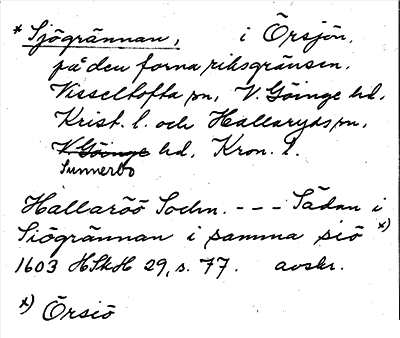 * Sjögrännan, i Örsjön,
på den forna riksgränsen.
Visseltofta sn, V. Göinge hd,
Krist. l. och Hallaryds sn,
V Göinge hd, Kron. l.
Sunnerbo
Hallaröö Sochn. --- Sädan i
Siögrännan i samma siö x)
1603 HSkH 29, s. 77. avskr.
x) Örsiö